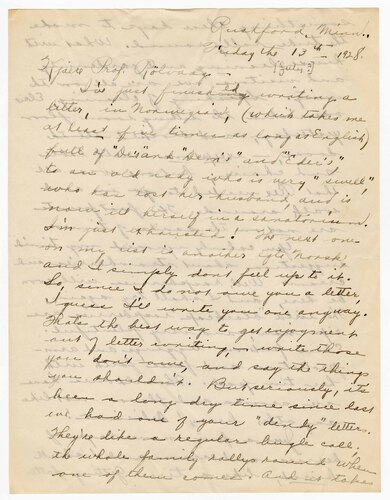 Rushford, Minn.
Friday the 13th 1928.
Kjære Prof. Rölvaag:—
I've just finished writing a
letter, in Norwegian, (which takes me
at least five times as long as English)
full of "De's" and "Dem's" and "Eder's"
to an old lady who is very "unwell",
who has lost her husband, and is
now herself in a sanatorium.
I'm just exhausted. The next one
on my list is another
and I simply don't feel up to it.
So, since I do not owe you a letter,
I guess I'd write you one anyway.
That's the best way to get enjoyment
out of letter writing,— write those
you don't owe, and say the things
you shouldn't. But seriously, it's
been a long dry time since last
we had one of your "dandy" letters.
They're like a regular bugle call,
the whole family rallys round when
one of them comes. And it takes